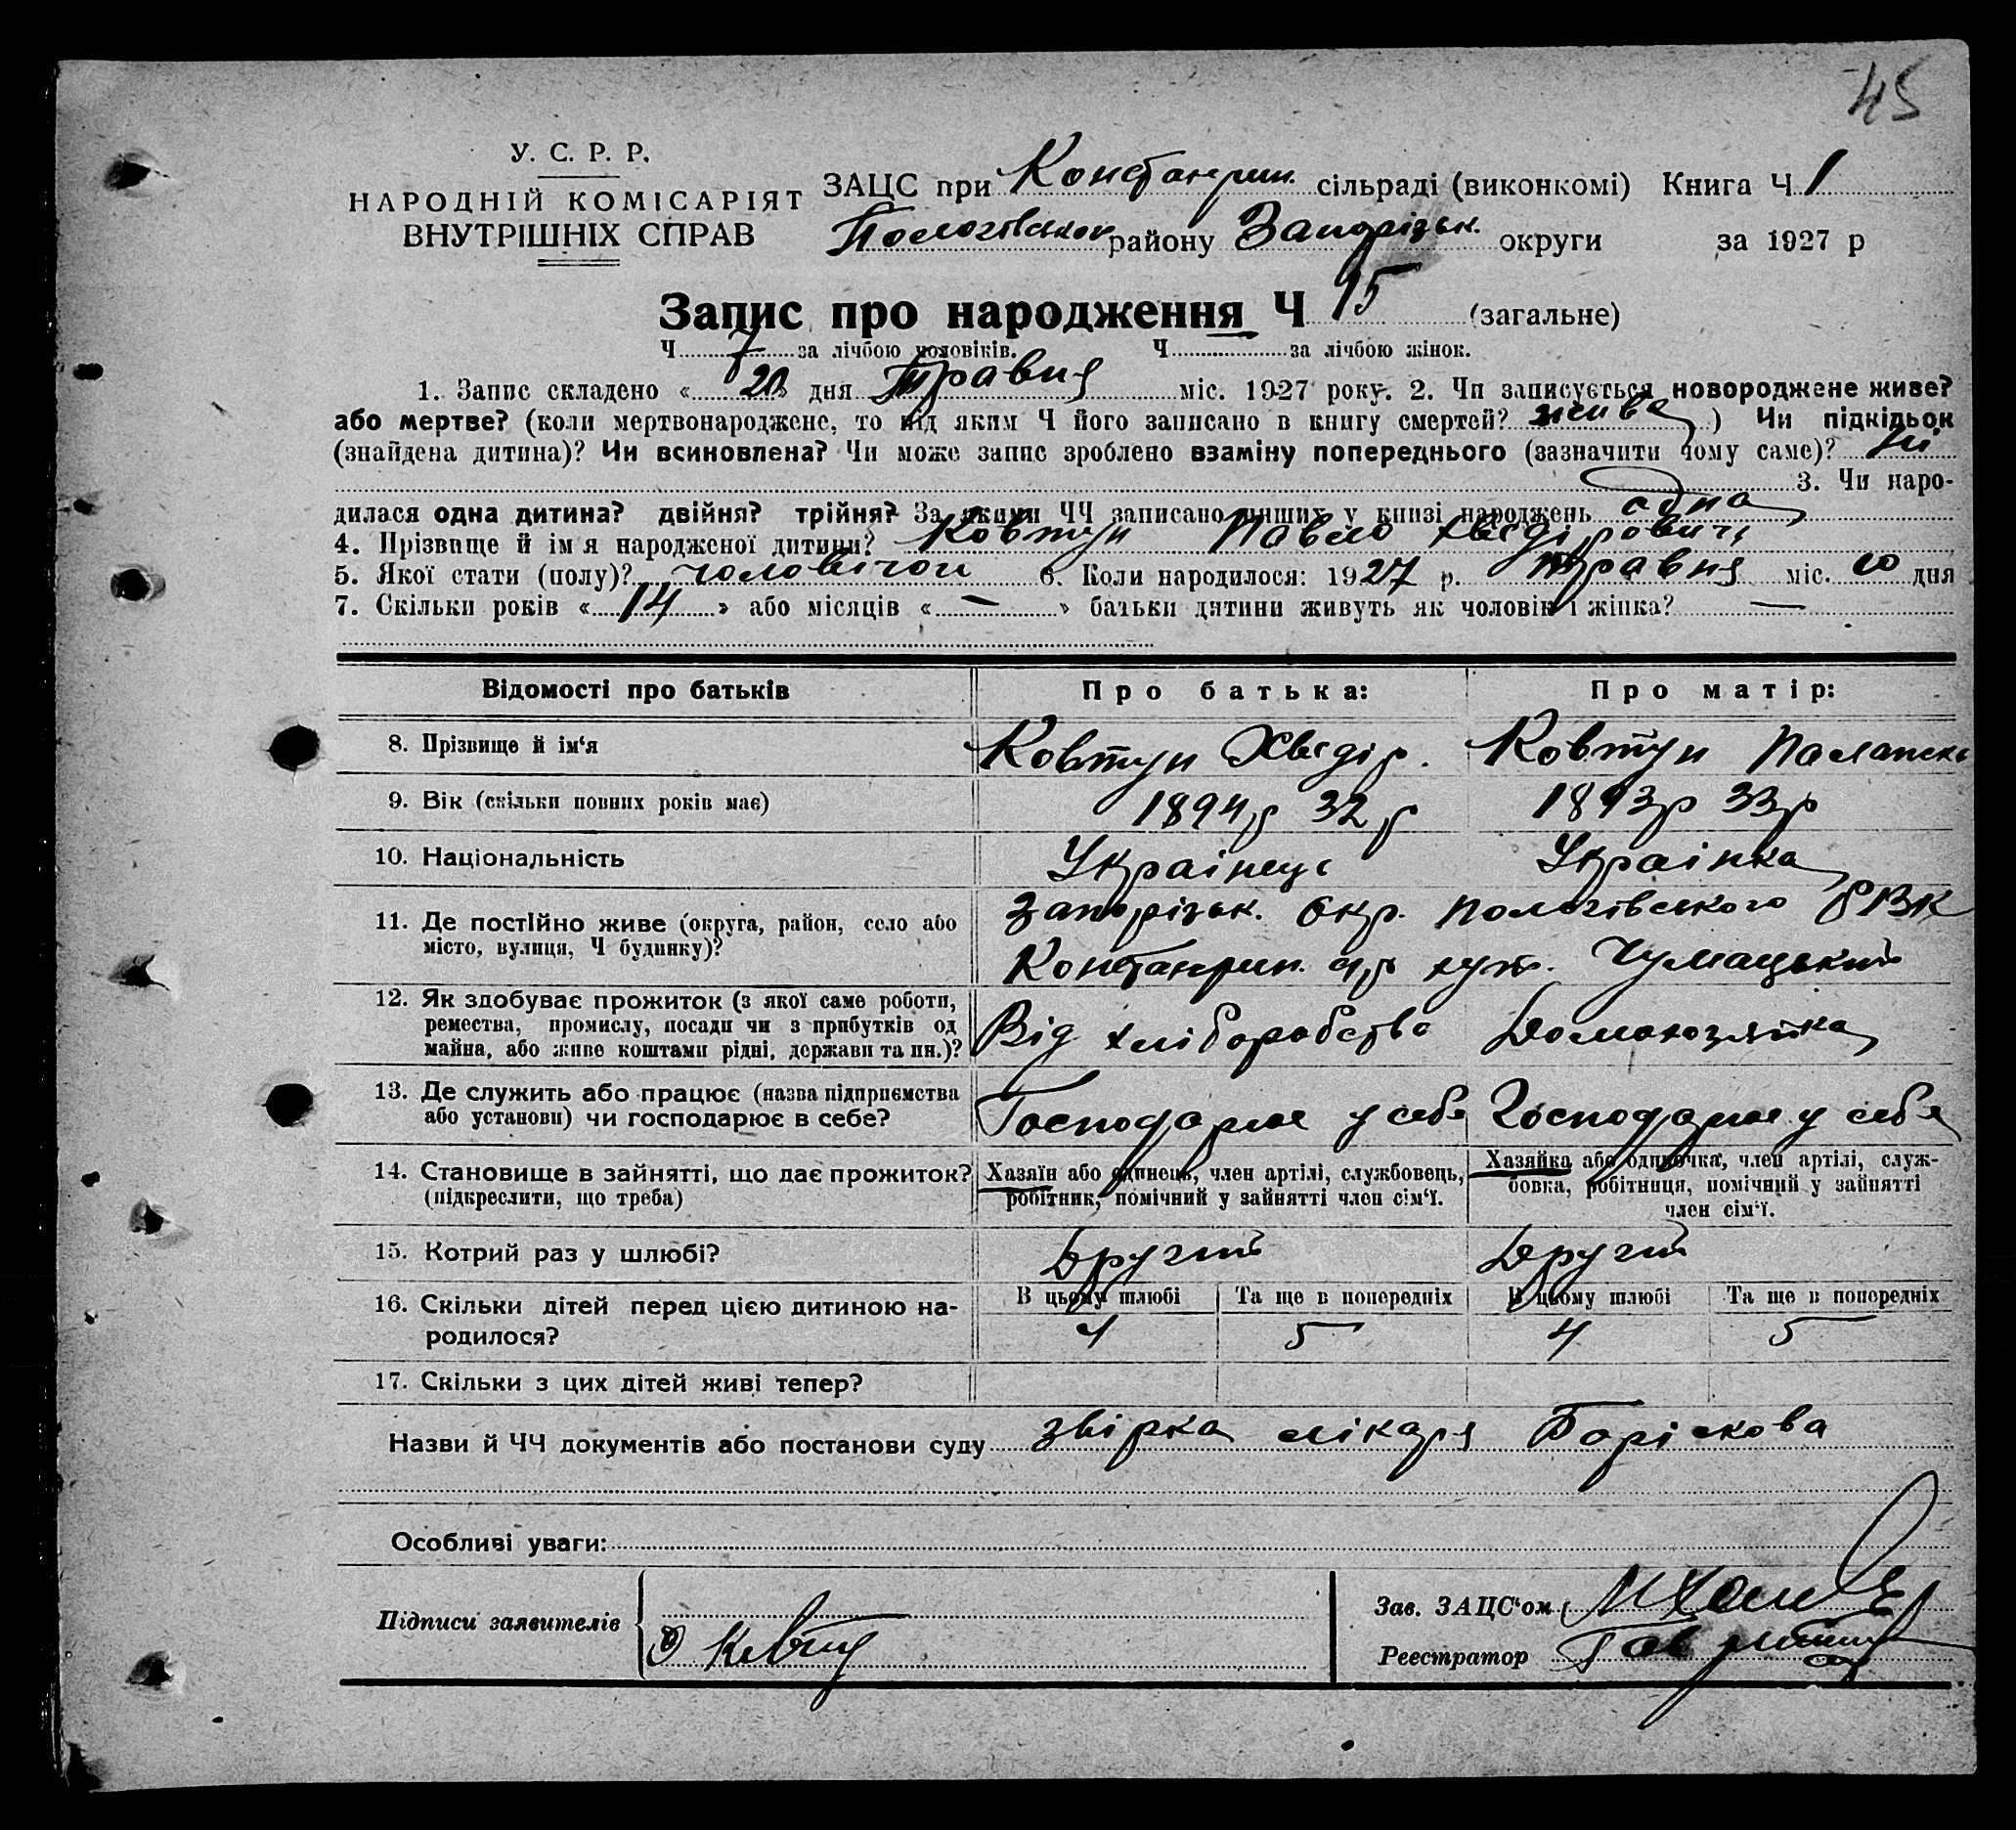 45
У. С. Р. Р.
НАРОДНІЙ КОМІСАРІЯТ
ВНУТРІШНІХ СПРАВ
ЗАЦС при Констанрин. сільраді (виконкомі) Книга Ч 1
Пологівськог району Запорізьк. округи за 1927 р
Запис про народження Ч 15 (загальне)
Ч 7 за лічбою чоловіків. Ч за лічбою жінок.
1. Запис складено « 20 » дня Травня міс. 1927 року. 2. Чи записується новороджене живе?
або мертве? (коли мертвонароджене, то під яким Ч його записано в книгу смертей? живе ) Чи підкідьок
(знайдена дитина)? Чи всиновлена? Чи може запис зроблено взаміну попереднього (зазначити чому саме)? Ні
3. Чи наро-
дилася одна дитина? двійня? трійня? За якими ЧЧ записано инших у книзі народжень одна
4. Прізвище й ім'я народженої дитини? Ковтун Павло Хведірович
5. Якої стати (полу)? чоловічої 6. Коли народилося: 1927 р. Травня міс. 10 дня
7. Скільки років « 14 » або місяців « — » батьки дитини живуть як чоловік і жінка? —
Відомості про батьків Про батька: Про матір:
8. Прізвище й ім'я Ковтун Хведір. Ковтун Палажка
9. Вік (скільки повних років має) 1894 р 32 р 1893 р 33 р
10. Національність Українець Українка
11. Де постійно живе (округа, район, село або Запорізьк. Окр. Пологівського РВК
місто, вулиця, Ч будинку)? Констанрин. с/р хут. Чумацький
12. Як здобуває прожиток (з якої саме роботи,
ремества, промислу, посади чи з прибутків од Від хліборобства Домохозяйка
майна, або живе коштами рідні, держави та ин.)?
13. Де служить або працює (назва підприємства
або установи) чи господарює в себе? Господарює у себе Господарює у себе
14. Становище в зайнятті, що дає прожиток? Хазяїн або одинець, член артілі, службовець, Хазяйка або одиночка, член артілі, служ-
(підкреслити, що треба) робітник, помічний у зайнятті член сім'ї. бовка, робітниця, помічний у зайнятті
член сім'ї.
15. Котрий раз у шлюбі? Другий Другий
16. Скільки дітей перед цією дитиною на- В цьому шлюбі Та ще в попередніх В цьому шлюбі Та ще в попередніх
родилося? 4 5 4 5
17. Скільки з цих дітей живі тепер?
Назви й ЧЧ документів або постанови суду звірка лікаря Боріскова
Особливі уваги:
Підписи заявителів
Зав. ЗАЦС'ом
Реєстратор